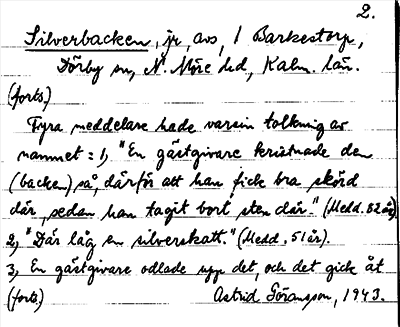 2.
Silverbacken, jr, avs, 1 Barkestorp,
Dörby sn, N. Möre hd, Kalm. län.
(forts,)
Fyra meddelare hade varsin tolkning av
namnet: 1, "En gästgivare kristnade den
(backen) så, därför att han fick bra skörd
där, sedan han tagit bort sten där." (Medd. 82 år)
2, "Där låg en silverskatt." (Medd. 51 år).
3, En gästgivare odlade upp det, och det gick åt
(forts) Astrid Göransson, 1943.